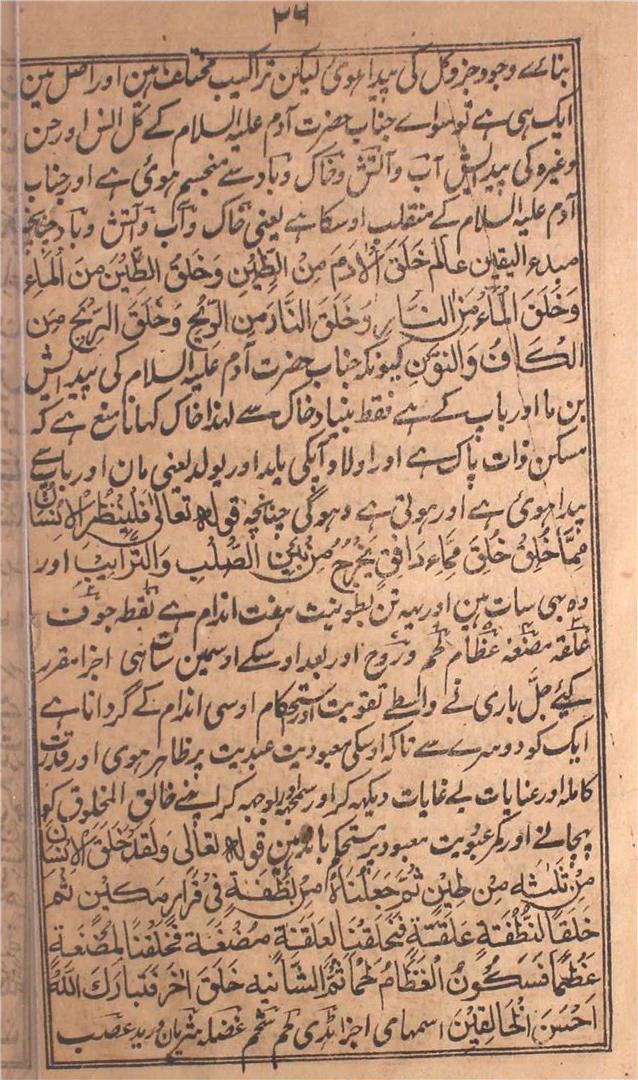 ٢٦
بنائے وجود جز و کل کی پیدا ہوئی لیکن تراکیب مختلف ہین اور اصل مین
ایک ہی ہے تو سواے جناب حضرت آدم علیہ السلام کے کل انس اور جن
وغیرہ کی پیدایش آب و آتش و خاک و باد سے منجسم ہوئی ہے اور جناب
آدم علیہ السلام کے منقلب اوسکا ہے یعنی خاک و آب و آتش و باد چنانچہ
مبدء الیقین عالم خَلَقَ الاٰدَمَ مِنَ الطِّیْنِ وَخَلَقَ الطِّیْنَ مِنَ الْمَاءِ
وَخَلَقَ الْمَاءَ مِنَ النَّارِ وَخَلَقَ النَّارَ مِنَ الرِّیْحِ وَخَلَقَ الرِّیْحَ مِنَ
الْکَافِ وَالنُّوْنِ کیونکہ جناب حضرت آدم علیہ السلام کی پیدایش
بن ما اور باپ کے ہے فقط بنیاد خاک سے لہذا خاک کہانا منع ہے کہ
مسکن ذات پاک ہے اور اولاد آپکی یلد اور یولد یعنی مان اور باپ سے
پیدا ہوئی ہے اور ہوتی ہے و ہوگی چنانچہ قولہ تعالی فَلْیَنْظُرِ الْاِنْسَانُ
مِمَّا خُلِقَ خُلِقَ مِمَّاءٍ دَافِقٍ یَخْرُجُ مِنْ بَیْنِ الصُّلْبِ وَالتَّرَائِبِ اور
وہ بہی سات ہین اور یہہ تن بطونیت ہفت اندام ہے نقطہ جوف
علقہ مضغہ عظام لحم و روح اور بعد اوسکے اوسمین سات ہی اجزا مقرر
کیئے جلّ باری نے واسطے تقویت اور استحکام اوسی اندام کے گردانا ہے
ایک کو دوسرے سے تاکہ اوسکی معبودیت عبدیت پر ظاہر ہوی اور قدرت
کاملہ اور عنایات بے غایات دیکہہ کر اور سمجہہ اور بوجہہ کر اپنے خالق المخلوق کو
پہچانے اور کمر عبودیت معبود پر مستحکم باندہین قولہ تعالی وَلَقَدْ خَلَقَ الْاِنْسَانَ
مِنْ ثَلٰثَہٍ مِنْ طِیْنٍ ثُمَّ جَعَلْنَاہُ مِنْ نُطْفَۃٍ فِیْ قَرَارٍ مَکِیْنٍ ثُمَّ
خَلَقْنَا النُّطْفَۃَ عَلَقَۃً فَخَلَقْنَا الْعَلَقَۃَ مُضْغَۃً فَخَلَقْنَا الْمُضْغَۃَ
عَظٰمًا فَسَکُوْنُ الْعِظَامُ لَحْمًا ثُمَّ الشَانِیہ خَلَقَ اٰخَرَ فَتَبَارَکَ اللّٰہُ
اَحْسَنَ الْخَالِقِیْنَ اسمہای اجزا ہڈی لحم شحم عضلہ شریان ورید عصب